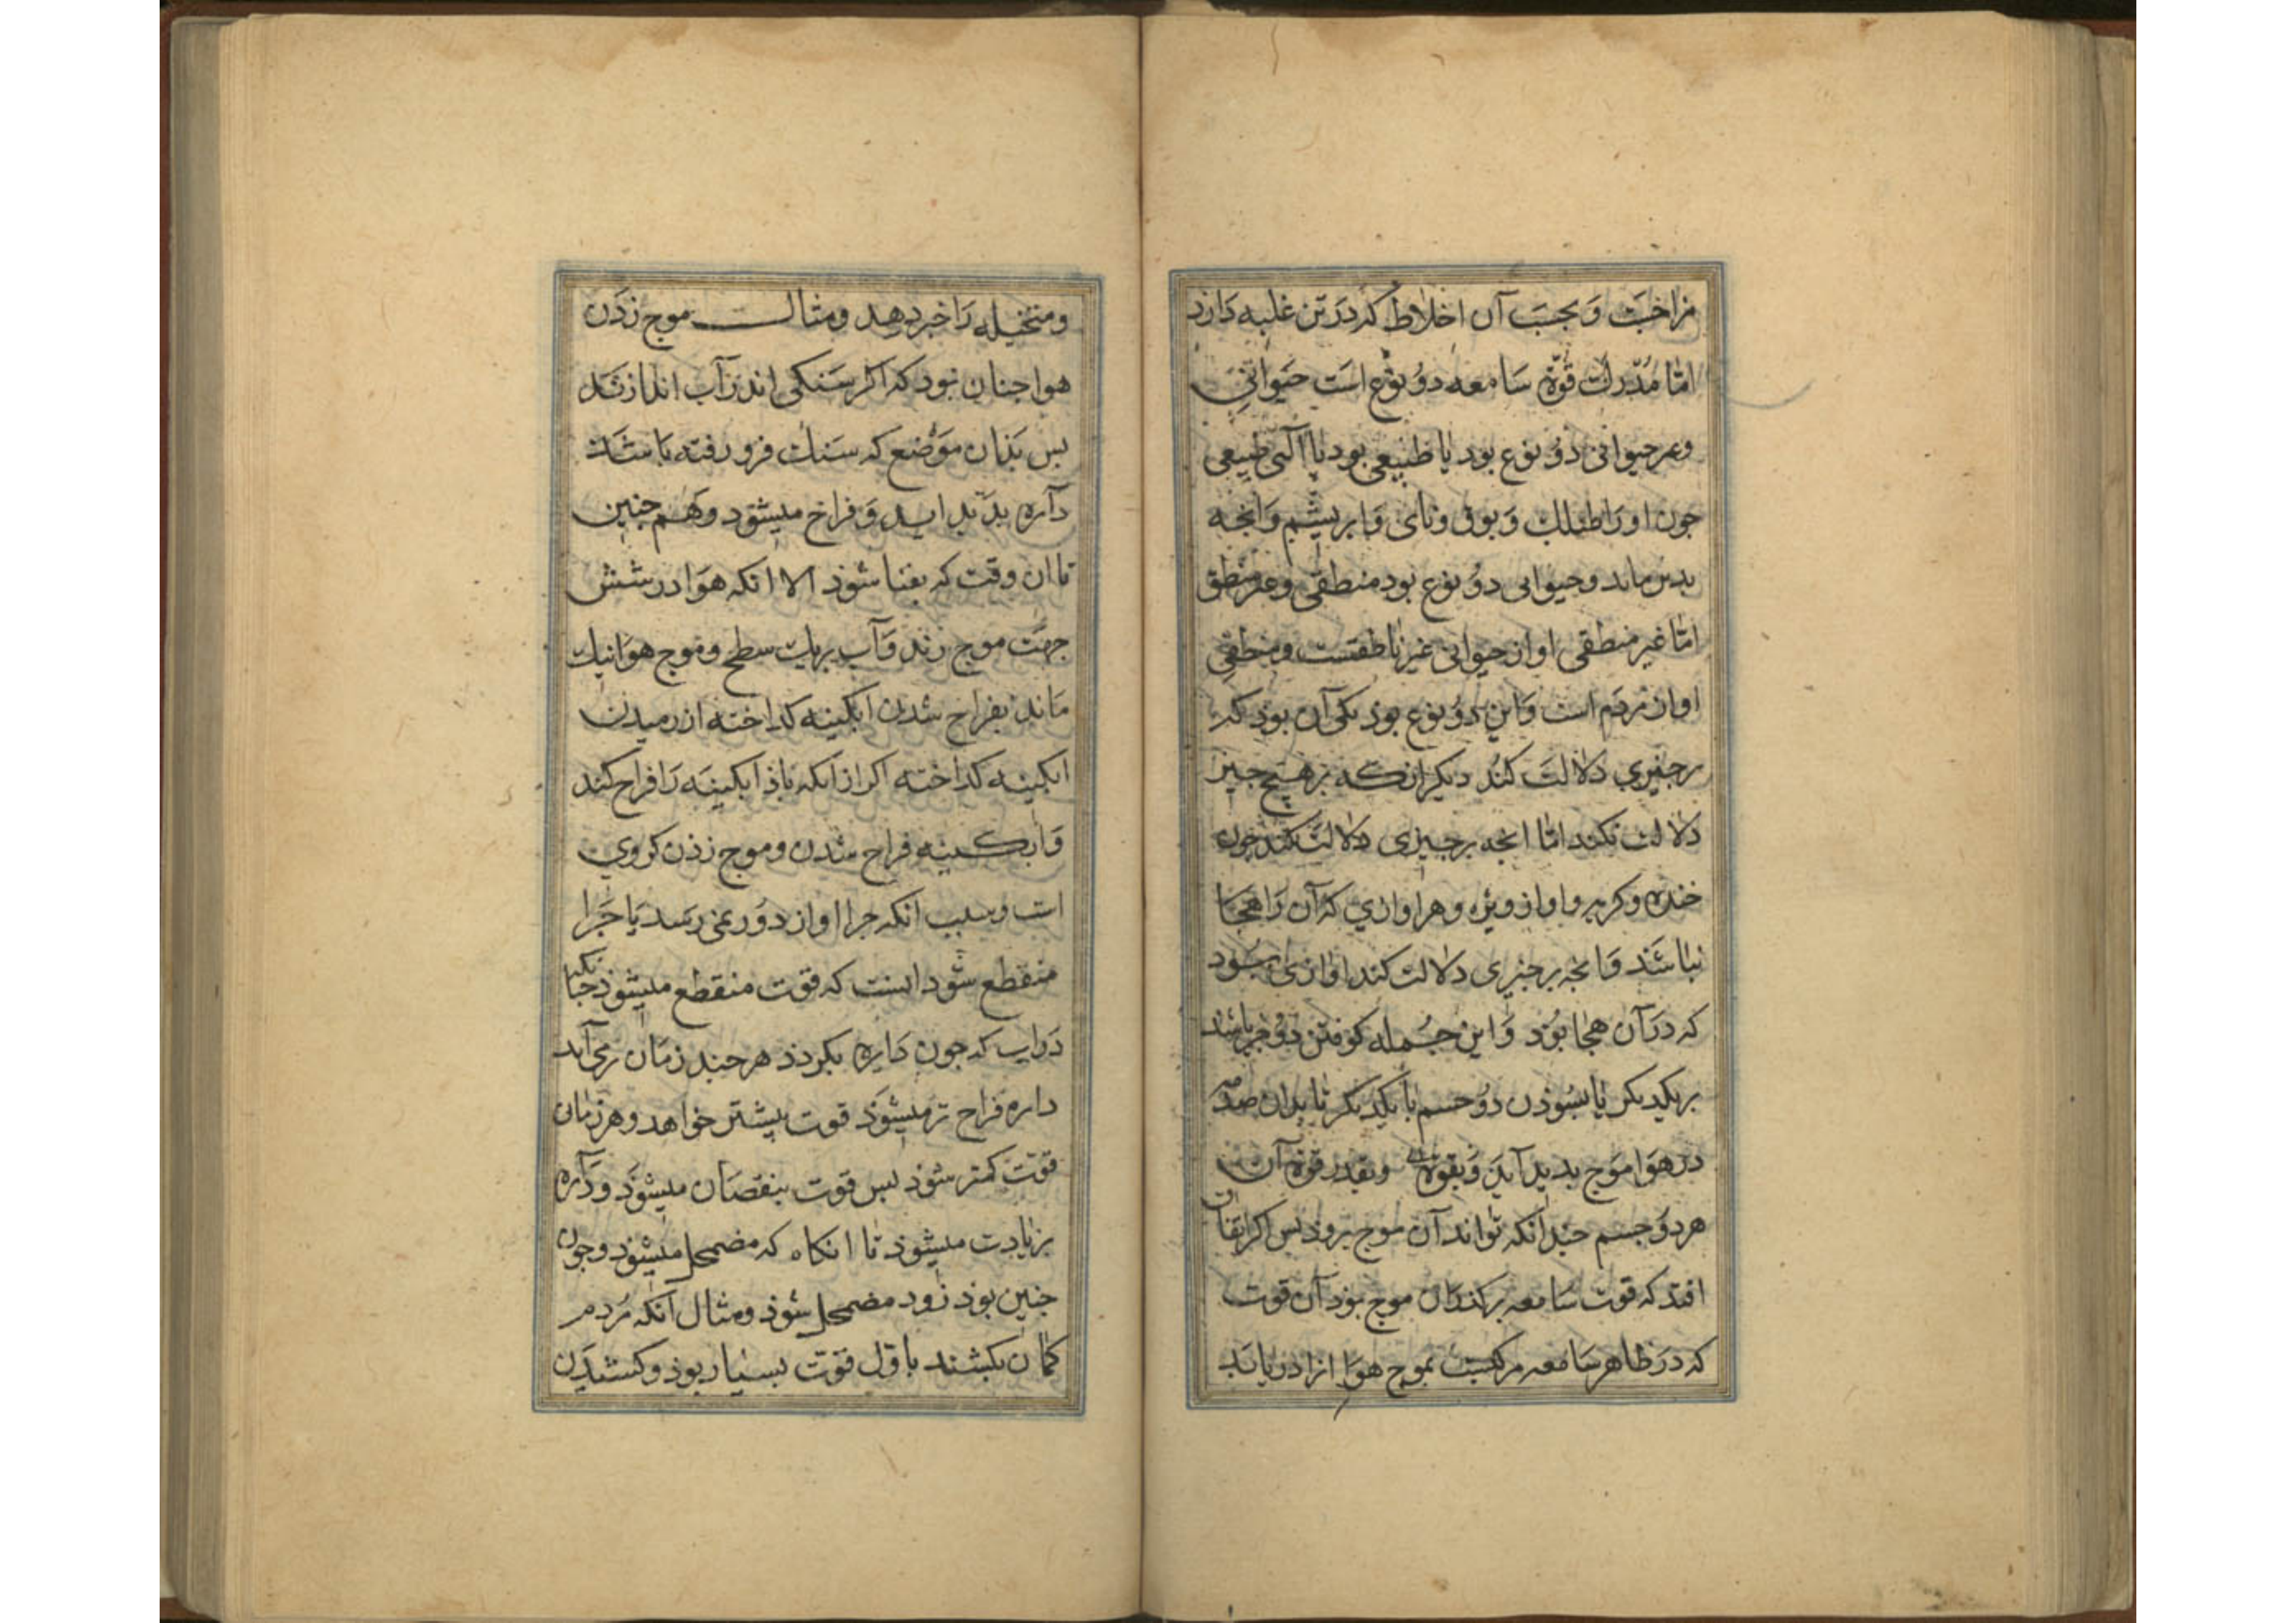 مزاخبت و بحسب آن اخلاط که در تن غلبه دارد
امّا مُدّرک قوّة سامعه دوُ نوع است حیوانی
وغیر حیوانی دوُ نوع بود یا طبیعی بود یا آلتی طبیعی
جون اورا طبلک و بوق و نای و ابریشم و انجه
بدین ماند و حیوانی دوُ نوع بود منطقی و غیر منطقی
امّا غیر منطقی اواز حیوانی غیر ناطقست و منطقی
اواز مردم است و این دوُ نوع بوذ یکی آن بوذ که
برجیزی دلالت کنُد دیکر انکه بر هیج جیز
دلالت نکند امّا انجه برجیزی دلالت کند جون
خنده و کریه و اواز ویژه و هر اوازی که آن را هجا
نباشد و انجه برجیزی دلالت کند اوازی بُود
که در آن هجا بُوَد و این جُمله کوفتن دوُ جرم باشد
بریکدیکر یا بسُوذن دوُ جسم با یکدیکر تا بدان صدمه
در هوا موج بدید آید و بقوة و بقدر قوة آن
هر دوُ جسم جندانکه تواند آن موج بروذ بس اکر اتفاق
افتد که قوت سامعه برکذر آن موج بوذ آن قوت
که در ظاهر سامعه مرکبست بموج هوا انرا دریابد
و متخیله را خبر دهد و مثال موج زدن
هوا جنان بود که اکر سنکی اندر آب اندازند
بس بذان موضع که سنک فرو رفته باشد
دآره بدید اید و فراخ میشود و هم جنین
تا ان وقت که بفنا شوذ الا انکه هوا در شش
جهت موج زند و آب بریک سطح و موج هوا نیک
ماند بفراخ شدن ابکینه کداخته از دمیدن
ابکینه کداخته اکر از انکه باذ ابکینه را فراخ کند
و ابکینه فراخ شدن و موج زذن کروی
است و سبب انکه جرا اواز دور نمی رسد یا جرا
منقطع شود انست که قوت منقطع میشوذ جنانکه
در اب که جون دایره بکردذ هر جند زمان بر می آید
داره فراخ تر میشوذ قوت بیشتر خواهد و هر زمان
قوّت کمتر شوذ بس قوت بنقصان میشوذ و دآره
بزیادت میشوذ تا انکاه که مضمحل میشوذ و جون
جنین بوذ زود مضمحل شوذ و مثال آنکه مُردم
کمان بکشند باوّل قوّت بسیار بوذ و کشیدن